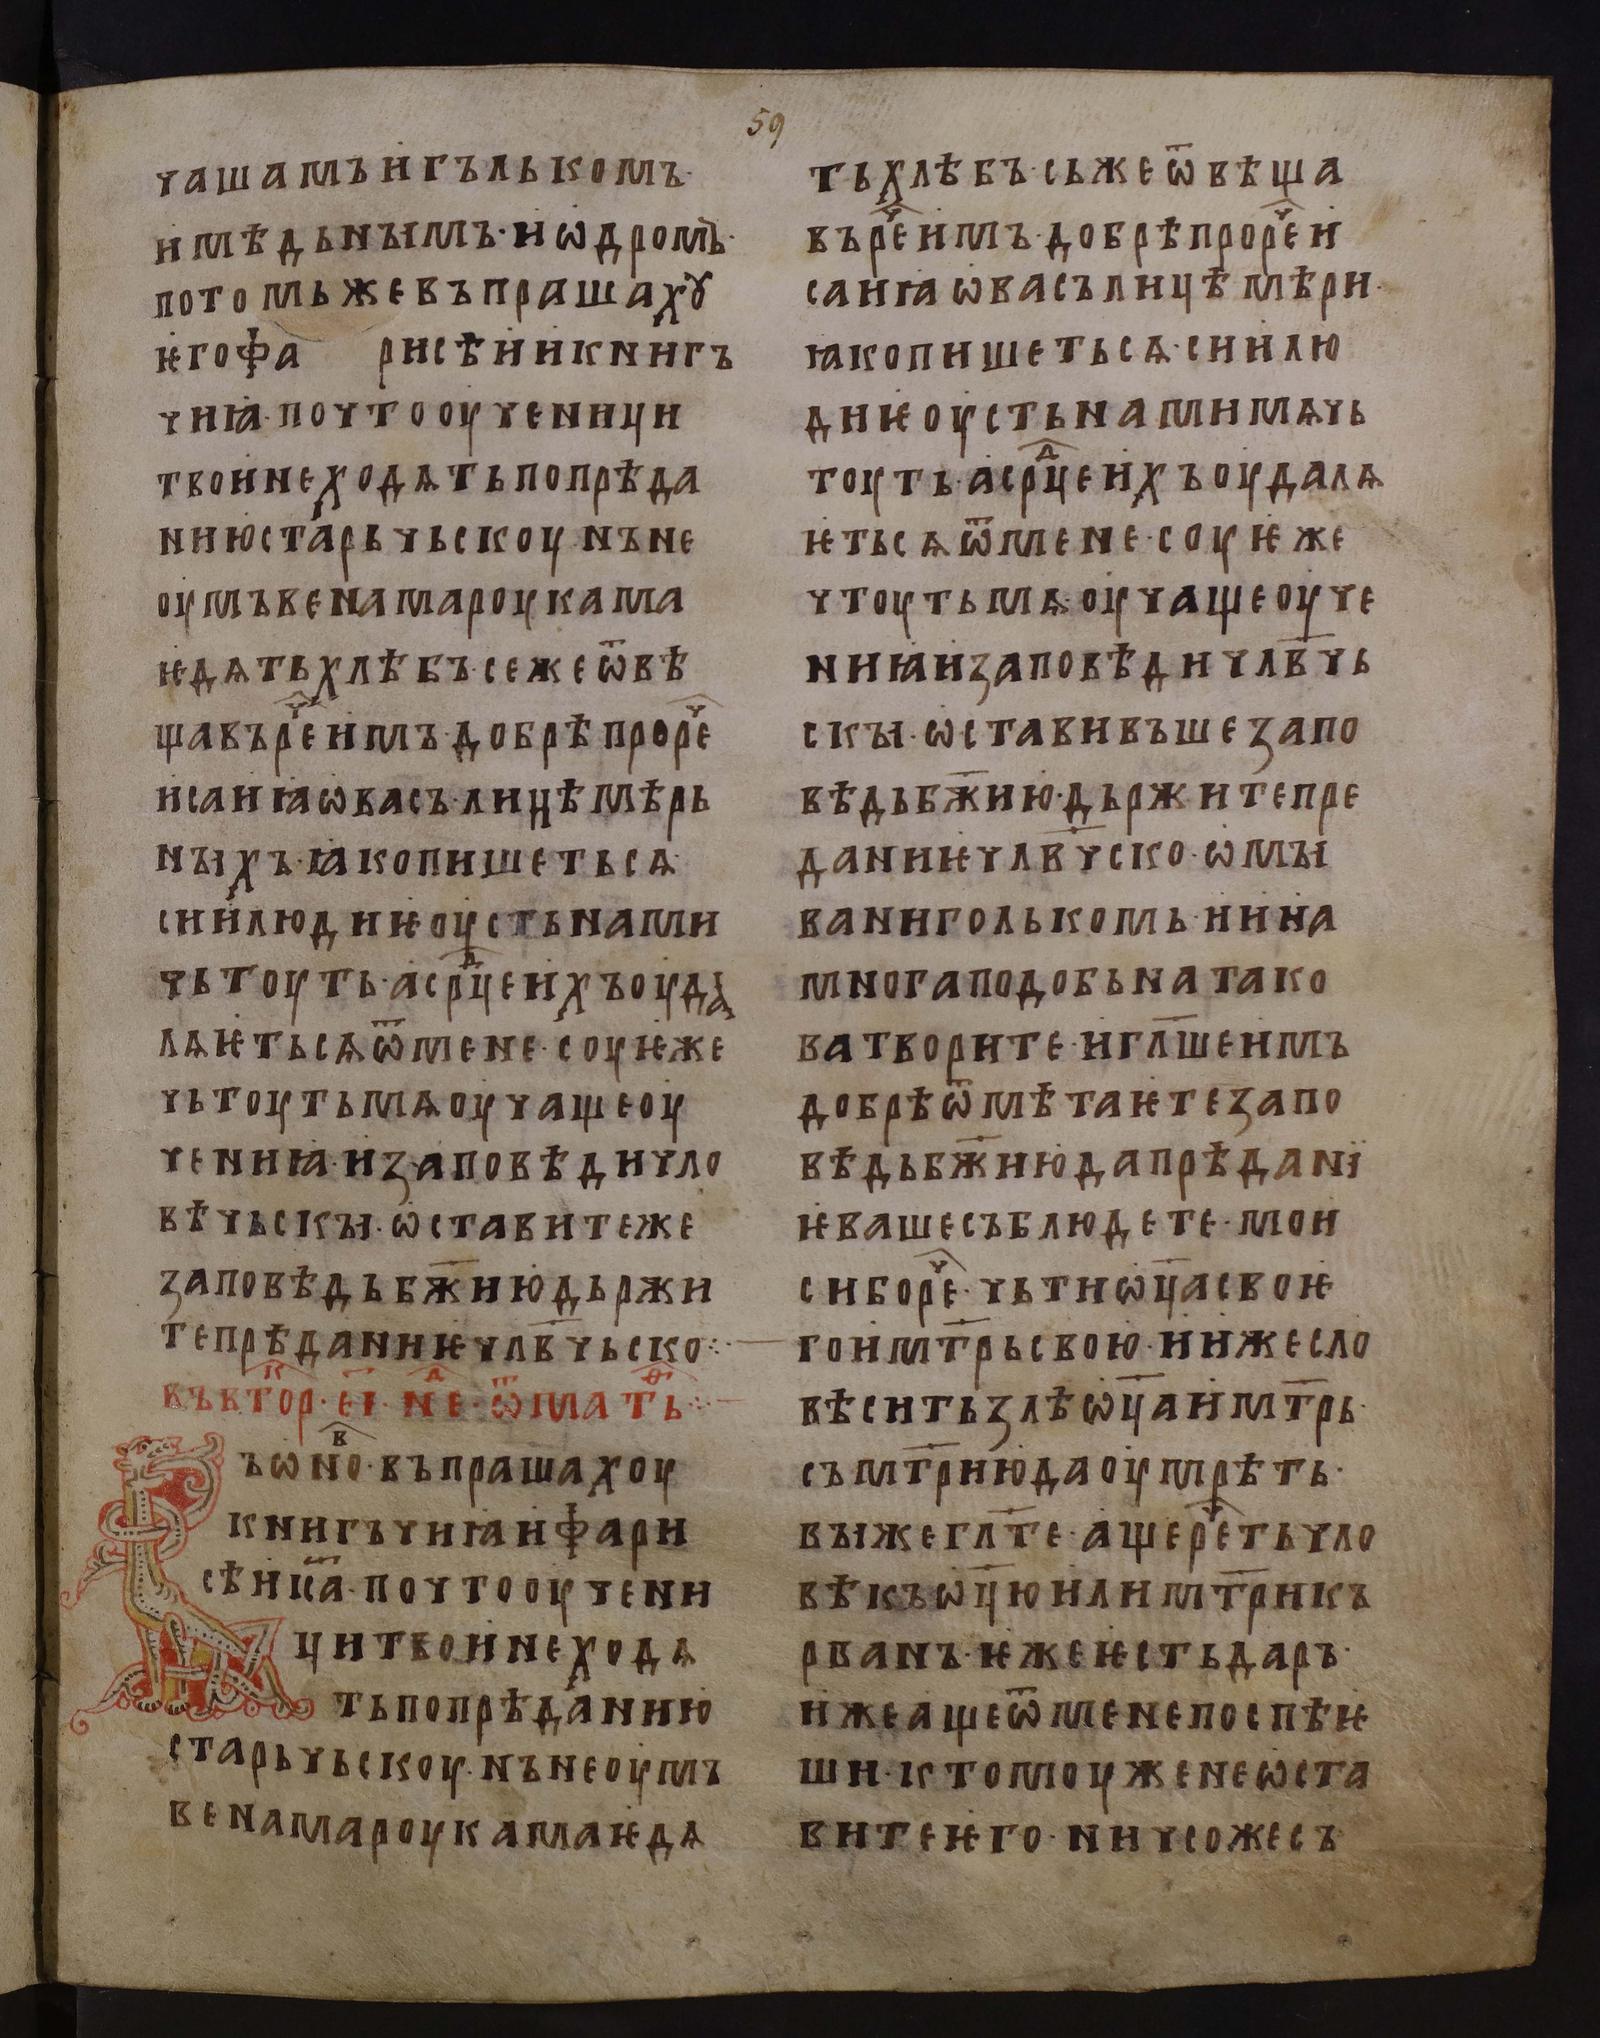 59
чашамъ нгълькомъ·
нмѣдьнъıмъ·нѡдромъ·
потомьжевъпрашахꙋ
ѥгофа рнсѣн нкннгъ
чнꙗ·почтооученнцн
твоннеходѧтьпопрѣда
ннюстарьчьскоу·нъне
оумъвенамароукама
ѥдѧтьхлѣбъ·сежеѿвѣ
щавъреⷱнмъ·добрѣпрореⷱ
нсанꙗѡвасъ·лнцѣмѣрь
нъıхъ·ꙗкопншетьсѧ·
сннлюднѥоустьнамн
чьтоуть·асрⷣценхъоуда
лѧѥтьсѧѿмене·соуѥже
чьтоутьмѧоучащеоу
ченнꙗ·нзаповѣдн чло
вѣчьскъı·ѡставнтеже
заповѣдьбж҃ню·дьржн
тепрѣданнѥчлв҃чьско⁘
въвтⷦор·еі҃·нⷣе·ѿматⷴь⁘
Въѡноⷡ·въпрашахоу
кннгъчнꙗнфарн
сѣнк҃а·почтооученн
цнтвоннеходѧ
тьпопрѣданню
старьчьскоу·нънеоумъ
венамароукамаѥдѧ
тьхлѣбъ·сьжеѿвѣща
въреⷱнмъ·добрѣпрореⷱн
санꙗѡвасълнцѣмѣрн·
ꙗкопншетьсѧ·сннлю
днѥоустьнамнмѧчь
тоуть·асрⷣценхъоудалѧ
ѥтьсѧѿмене·соуѥже
чтоутьмѧ·оучащеоуче
ннꙗнзаповѣдн члв҃чь
скъı·ѡставнвъшезапо
вѣдьбж҃ню·дьржнтепре
даннѥчлв҃чско·ѡмъı
ванн голькомь·нн на
многаподобьна тако
ватворнте·нгл҃шенмъ
добрѣѿмѣтаѥтезапо
вѣдьбж҃нюдапрѣданї
ѥвашесъблюдете·мон
снбореⷱ·чьтнѡц҃асвоѥ
гонмт҃рьсвою·ннжесло
вѣснтьзлѣѡц҃анмт҃рь·
съмт҃рнюдаоумрѣть·
въıжегл҃те·ащереⷱтьчло
вѣкъѡц҃юнлнмт҃рнкъ
рванъ·ѥжеѥстьдаръ·
нжеащеѿменепоспѣѥ
шн·ктомоуженеѡста
внтеѥго·ннчсожесъ